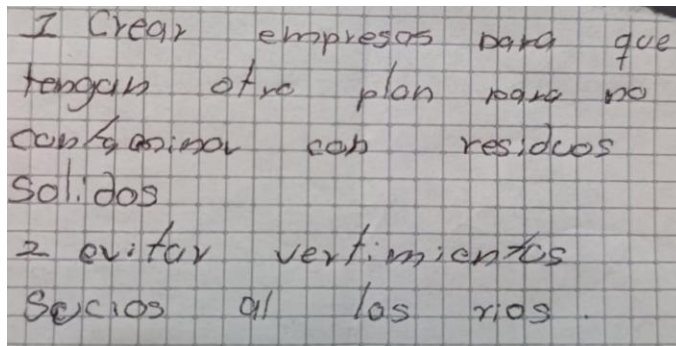 1 Crear empresas para que
tengan otro plan para no
contaminar con residuos
solidos
2 evitar vertimientos
Sucios al los rios.